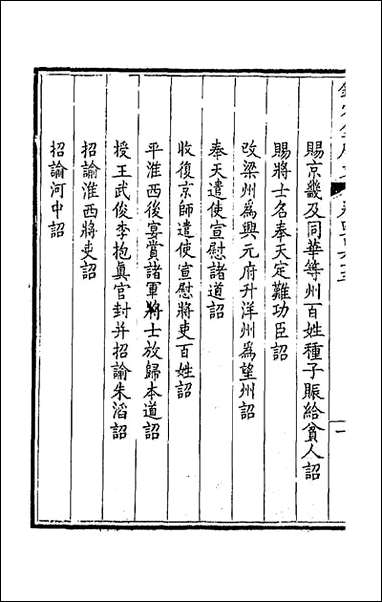 賜京畿及同華等州百姓種子賑給貧人詔
賜將士名奉天定難功臣詔
改梁州為興元府升洋州為望州詔
奉天遣使宣慰諸道詔
收復京師遣使宣慰將吏百姓詔
平淮西後宴賞諸軍將士放歸本道詔
授王武俊李抱真官封并招諭朱滔詔
招諭淮西將吏詔
招諭河中詔